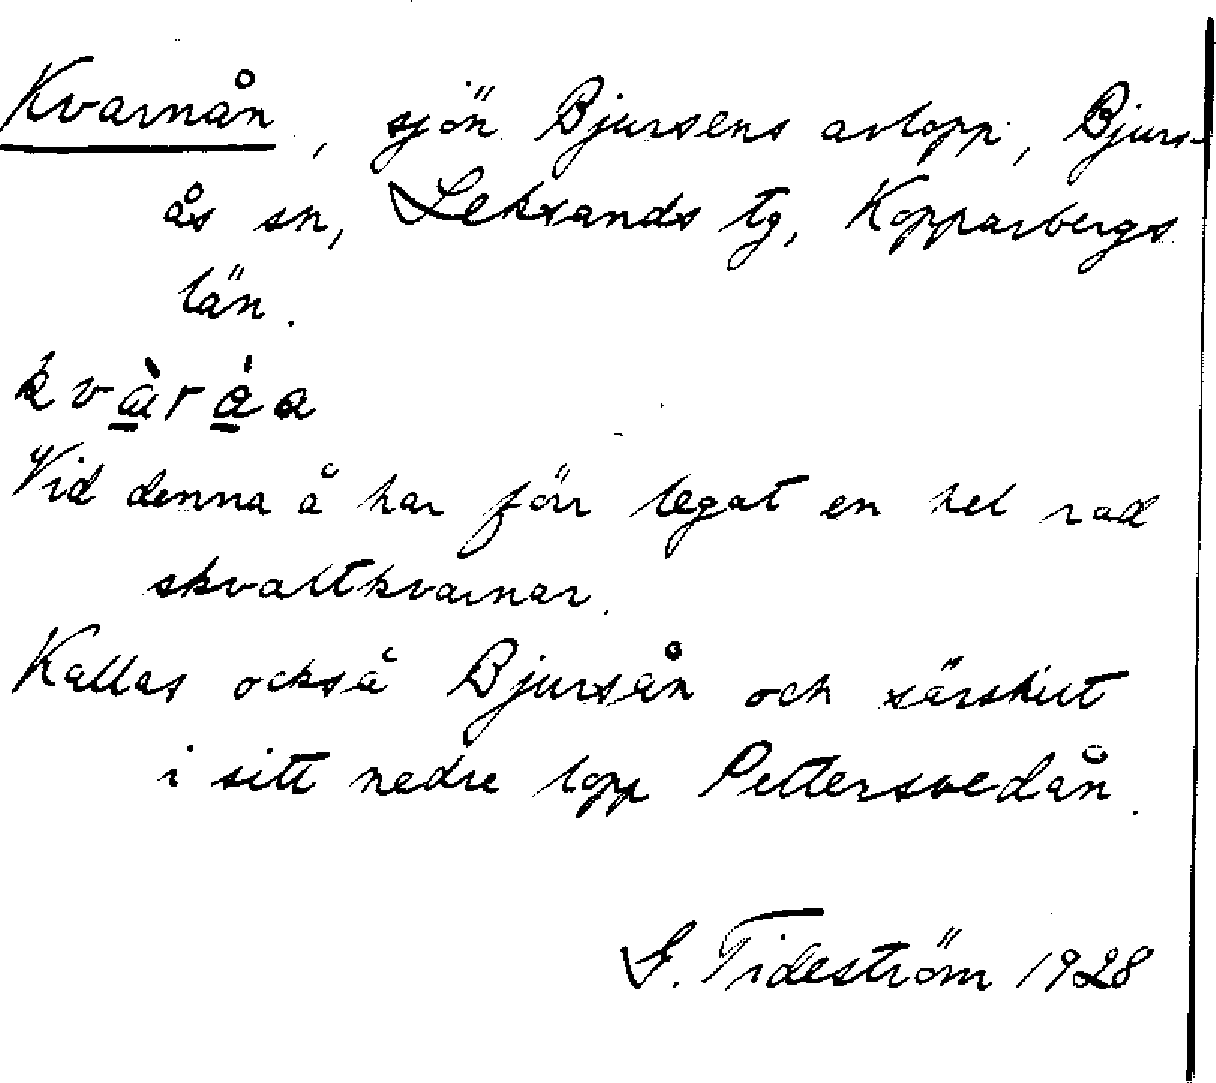 Kvarnån, sjön Bjursens avlopp, Bjurs-
ås sn, Leksands tg, Kopparbergs
län.
kvàráa
Vid denna å har förr legat en hel rad
skvaltkvarnar.
Kallas också Bjursån och särskilt
i sitt nedre lopp Pettersvedån.
G. Tideström 1928